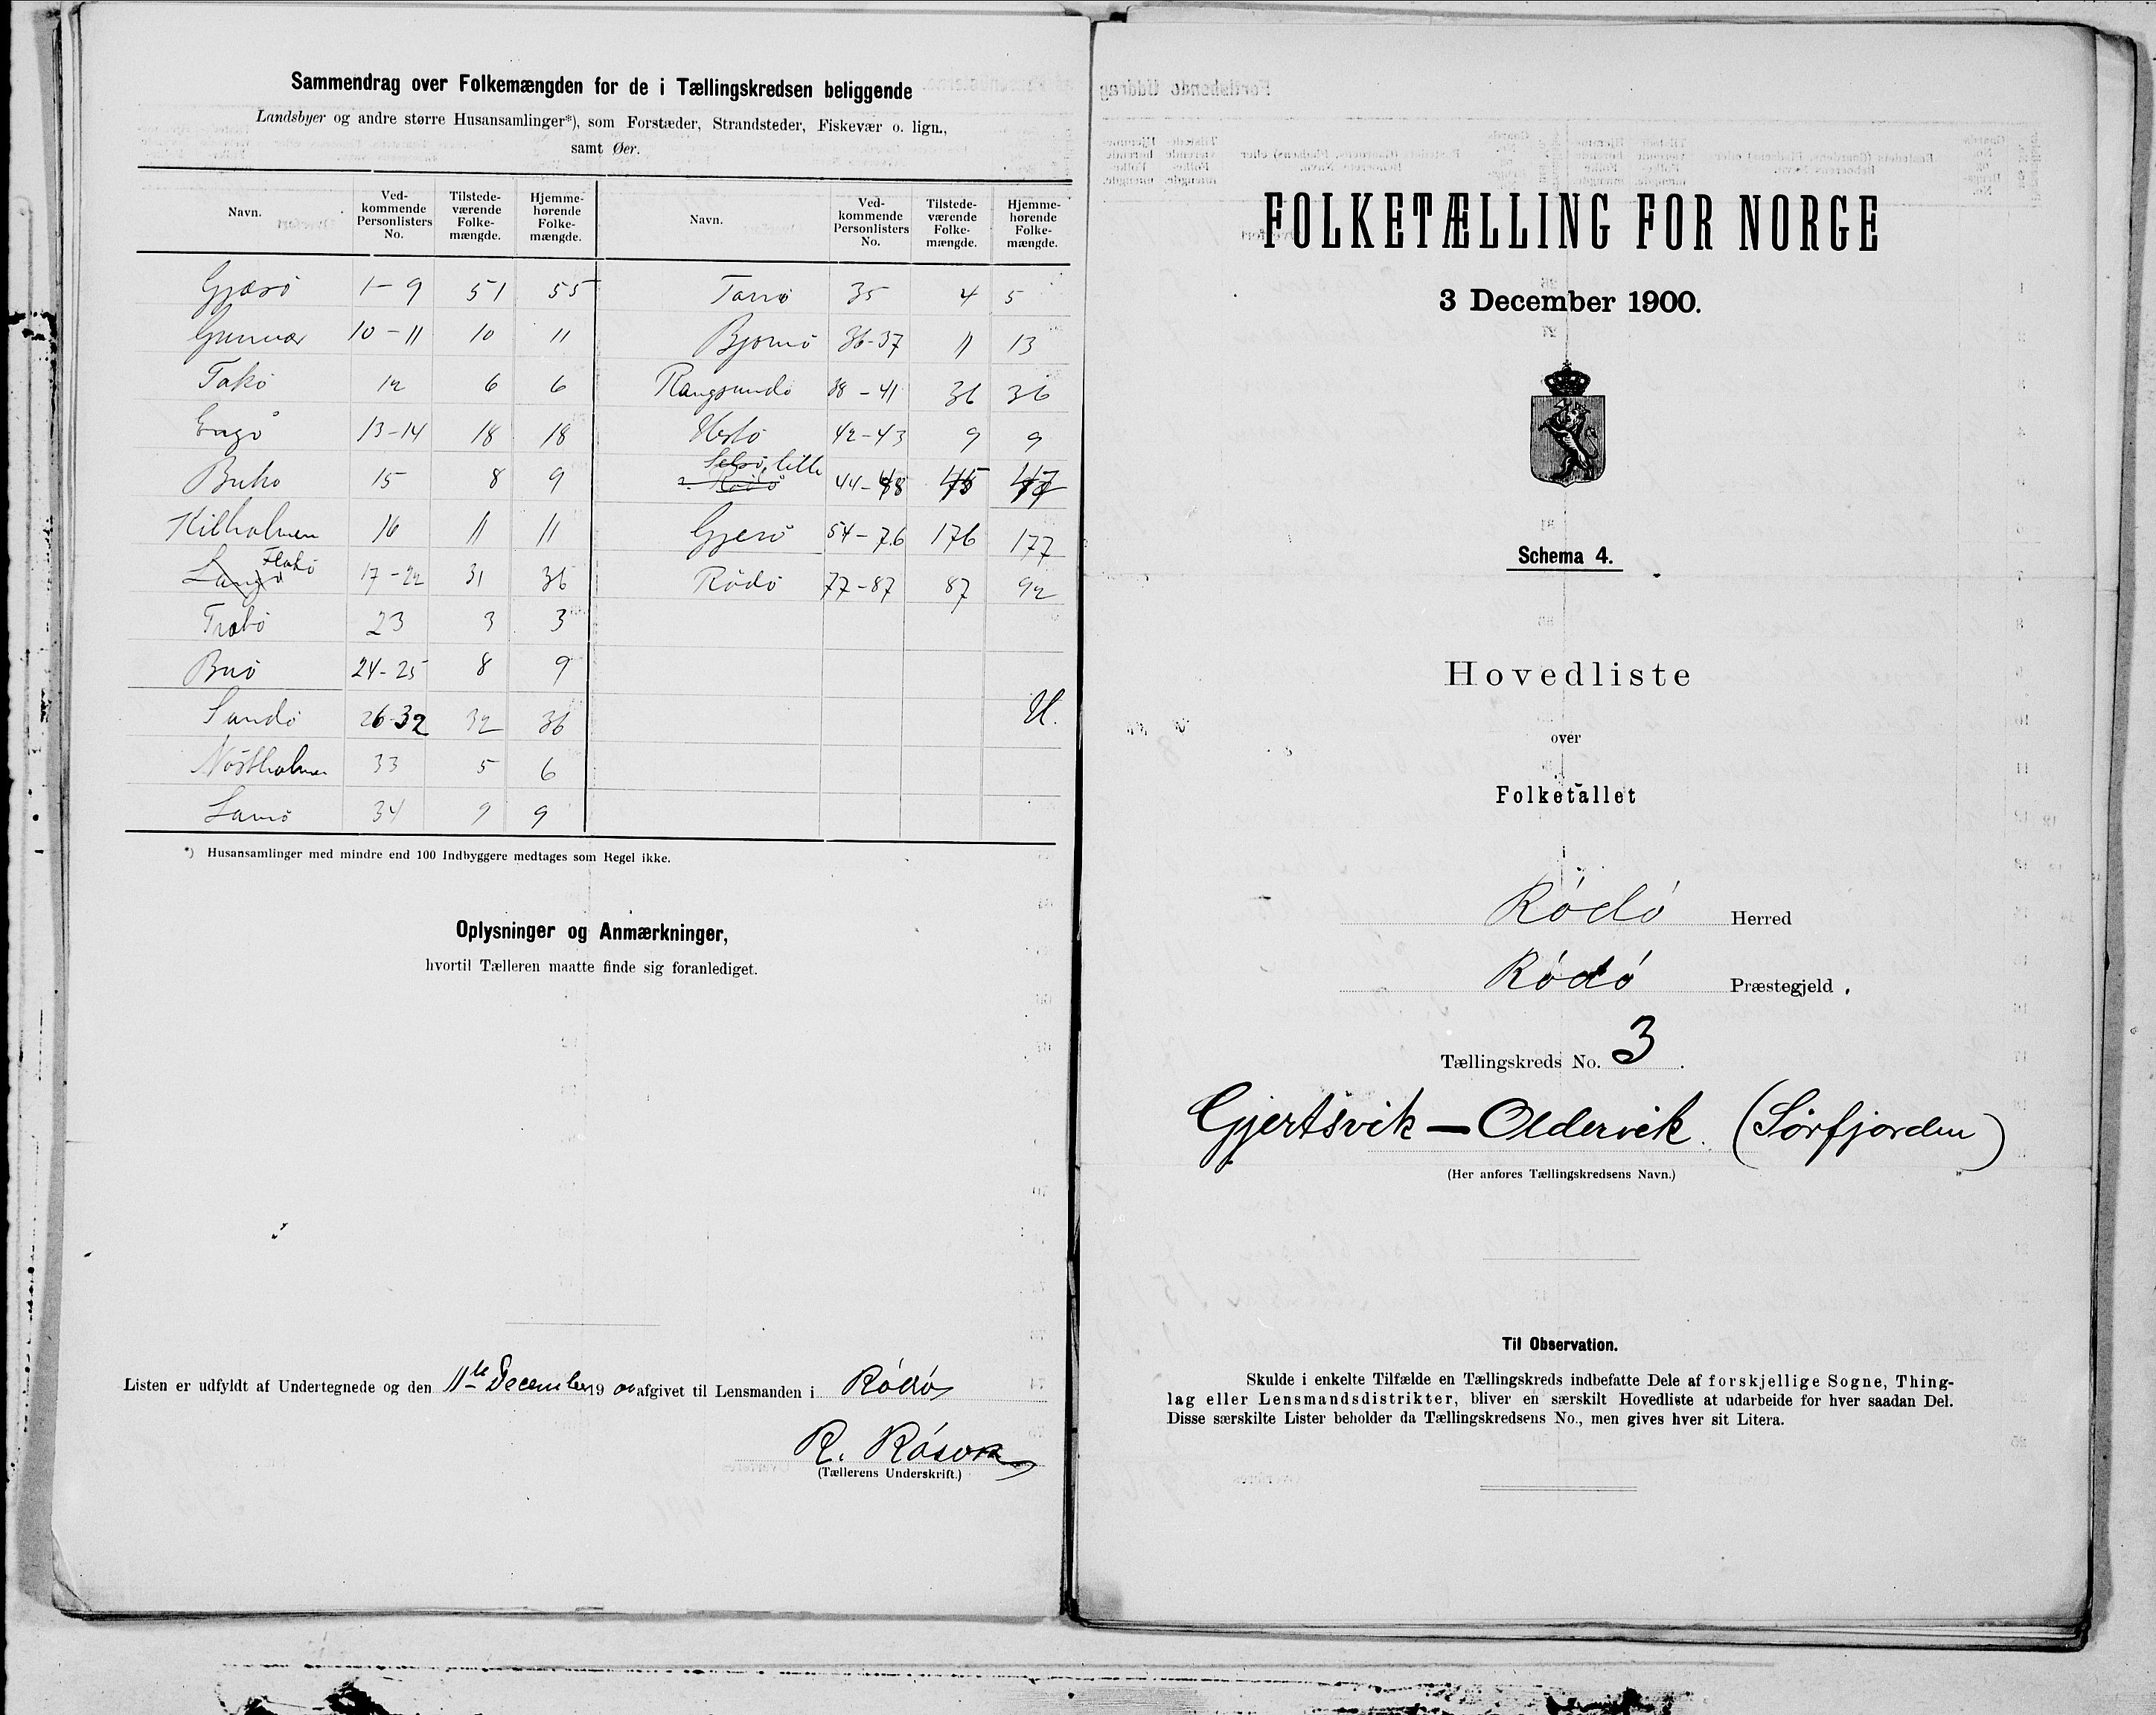 Sammendrag over Folkemængden for de i Tællingskredsen beliggende
Landsbyer og andre større Husansamlinger*), som Forstæder, Strandsteder, Fiskevær o. lign.,
samt Øer.
Navn. Ved-kommende Personlisters No. Tilstede-værende Folke-mængde. Hjemme-hørende Folke-mængde. Navn. Ved-kommende Personlisters No. Tilstede-værende Folke-mængde. Hjemme-hørende Folke-mængde.
Gjæsö 1-9 51 55 35 4 5
10-11 10 11 36-37 11 13
12 6 6 Rangsundö 38-41 36 36
Engö 13-14 18 18 Hestö 42-43 9 9
15 8 9 Selsö, lille 44-
Kilholmen 16 11 11 Gjerö 54-76 176 177
Flatö 17-22 31 36 Rödö 77-87 87 92
23 3 3
Buö 24-25 8 9
Sandö 26-32 32 36
U.
33 5 6
34 9 9
*) Husansamlinger med mindre end 100 Indbyggere medtages som Regel ikke.
Oplysninger og Anmærkninger,
hvortil Tælleren maatte finde sig foranlediget.
Listen er udfyldt af Undertegnede og den 11te December 1900 afgivet til Lensmanden i Rödö
R. Rösvik
(Tællerens Underskrift.)
FOLKETÆLLING FOR NORGE
3 December 1900.
Schema 4.
Hovedliste
over
Folketallet
i
Rödö Herred
Rödö Præstegjeld.
Tællingskreds No. 3.
Gjertsvik — Oldervik. (Sörfjorden)
(Her anføres Tællingskredsens Navn.)
Til Observation.
Skulde i enkelte Tilfælde en Tællingskreds indbefatte Dele af forskjellige Sogne, Thing-
lag eller Lensmandsdistrikter, bliver en særskilt Hovedliste at udarbeide for hver saadan Del.
Disse særskilte Lister beholder da Tællingskredsens No., men gives hver sit Litera.